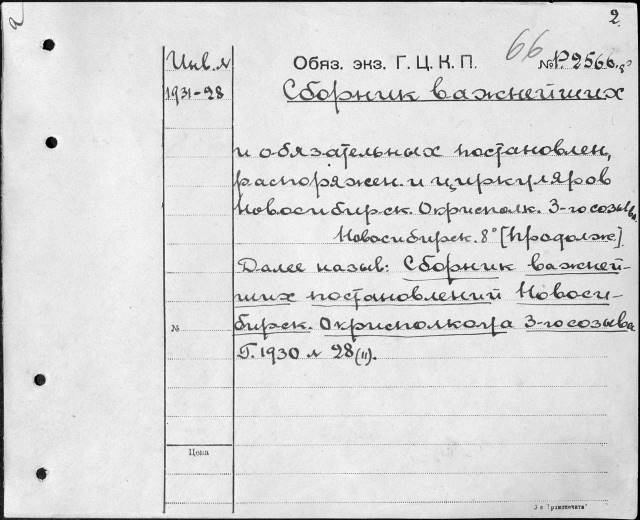 2.
66
Инв. №
Обяз. экз. Г. Ц. К. П.
№ Р. 2566
1931-28
Сборник важнейших
и обязательных постановлен,
распоряжен. и циркуляров
Новосибирск. Окрисполк. 3-го созыва
Новосибирск. 8° [продолж]
Далее назыв: Сборник важней-
ших постановлений Новоси-
бирск. Окрисполкома 3-го созыва
№
Г. 1930 № 28 (11).
Цена